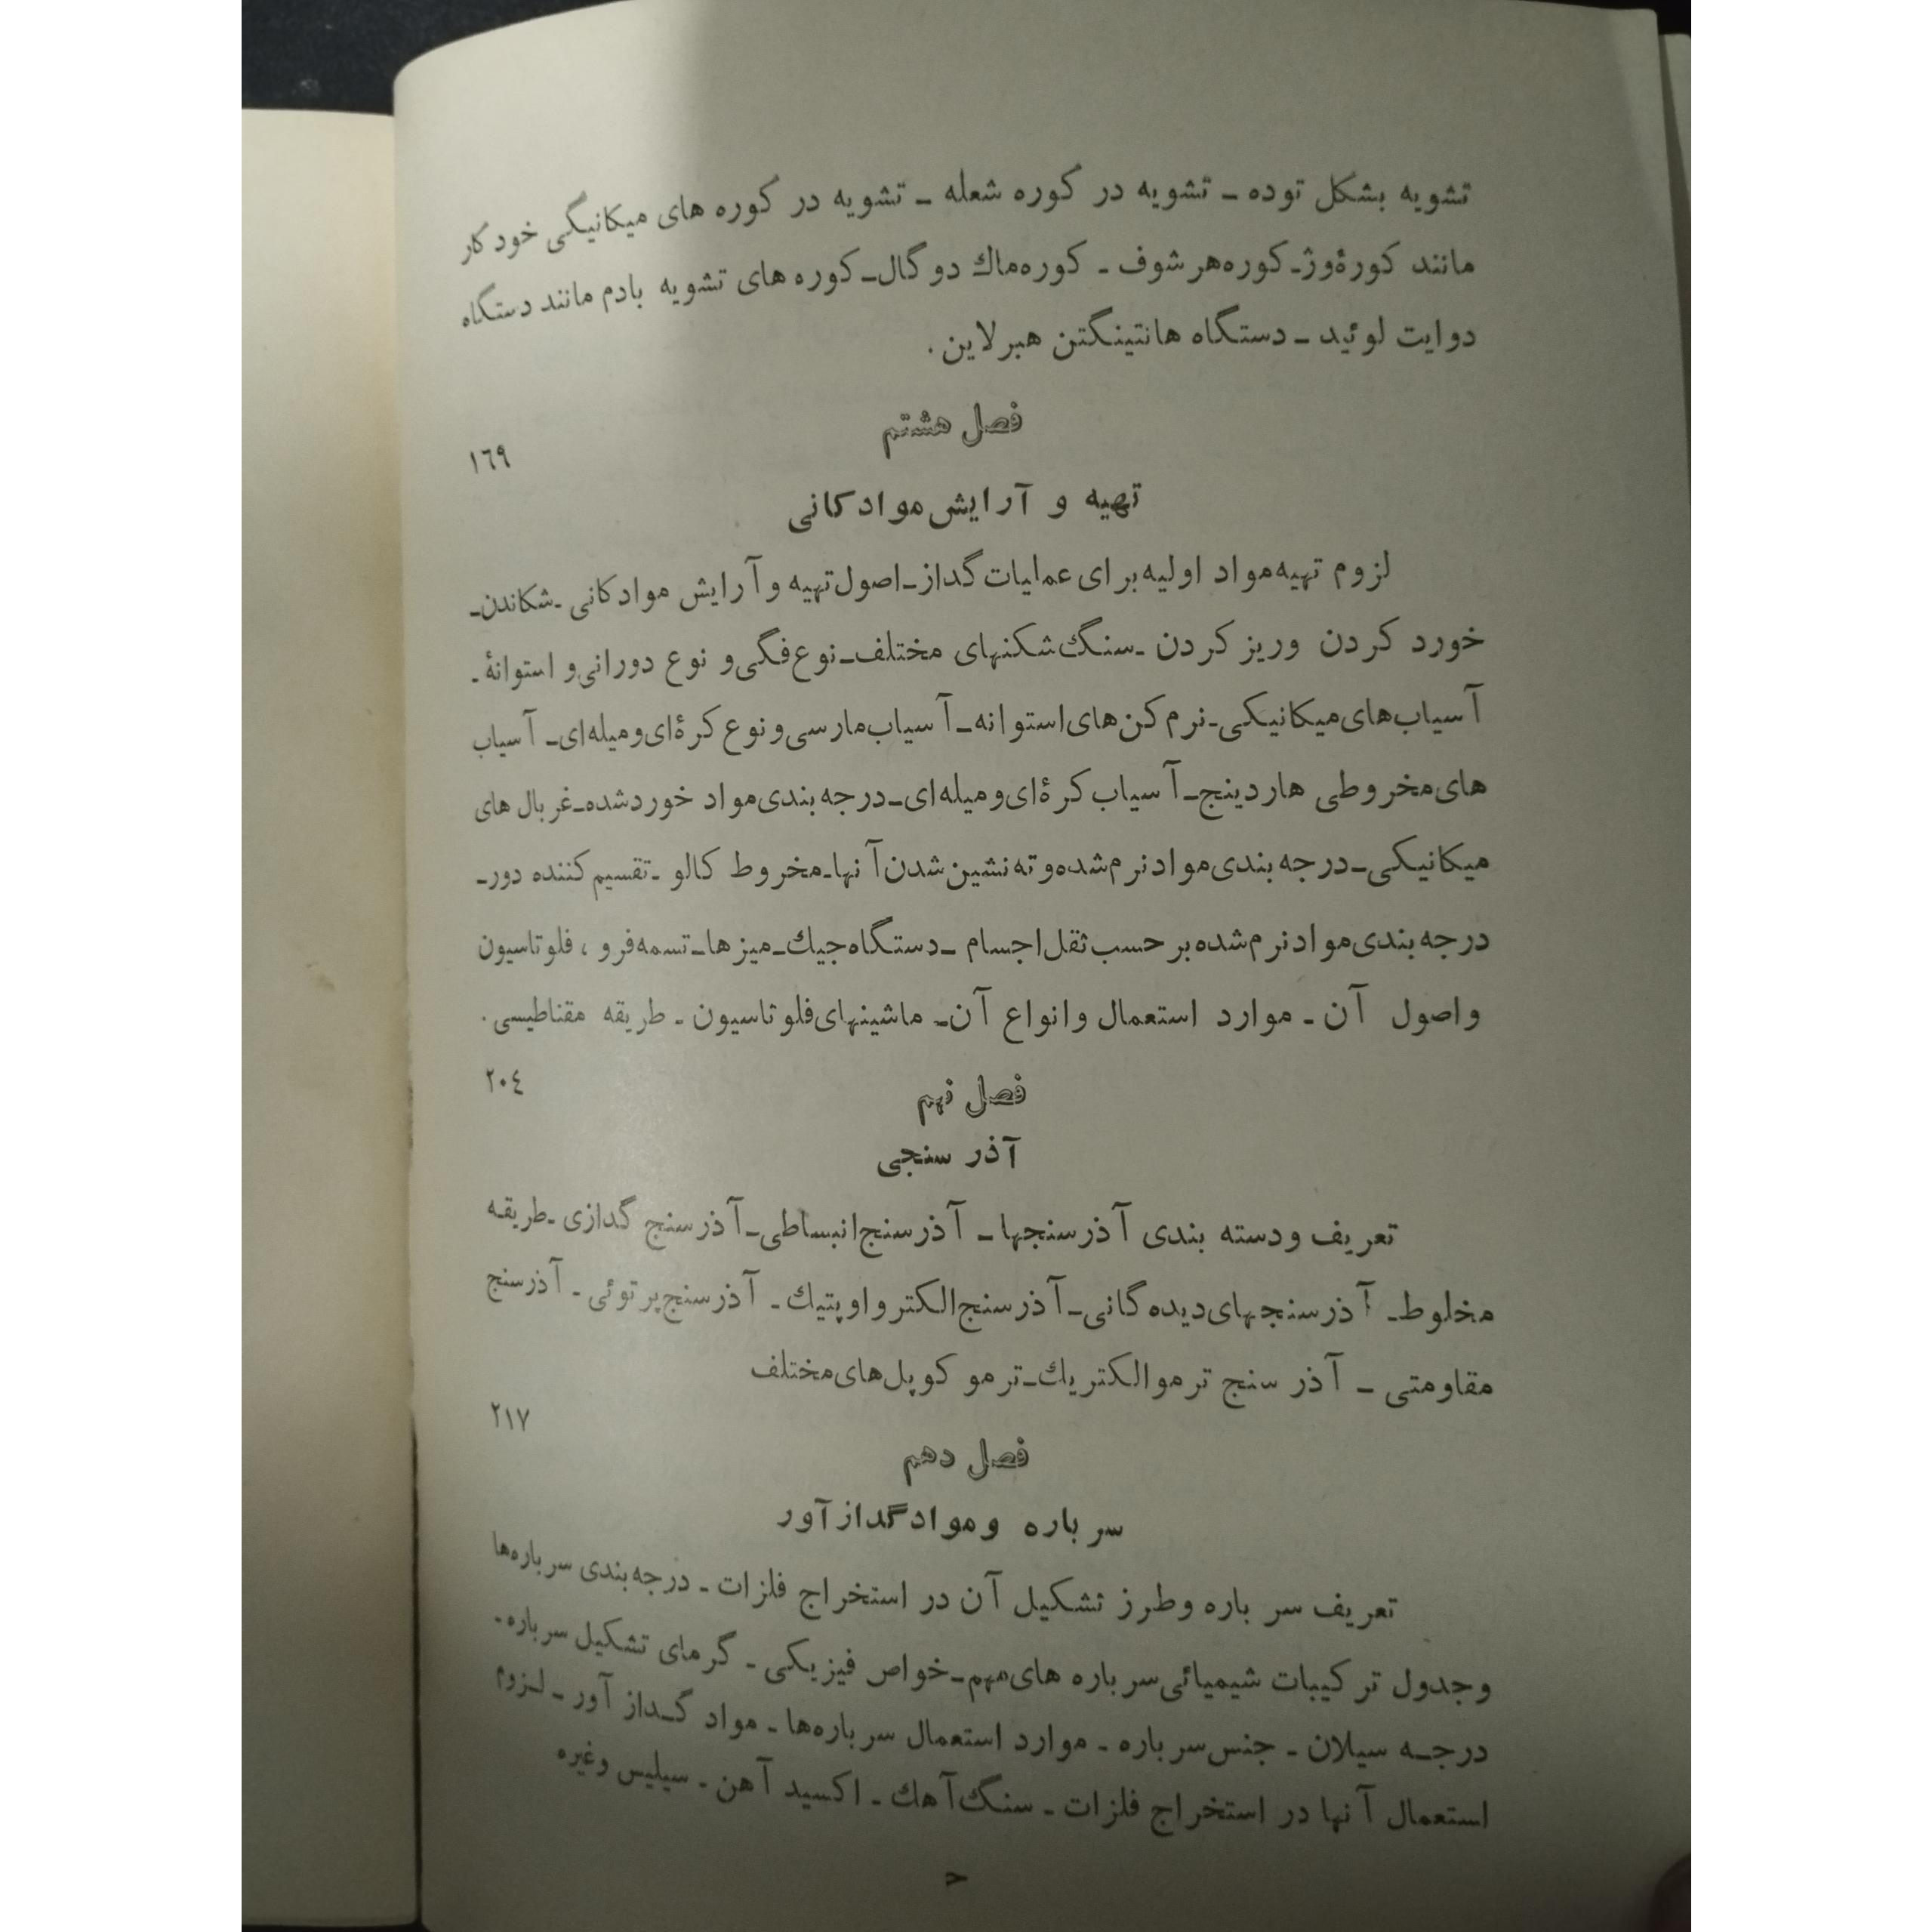 تشویه بشکل توده ـ تشویه در کوره شعله ـ تشویه در کوره های میکانیگی خودکار
مانند کورهٔ وژـ کوره هرشوف ـ کوره ماك دوگال ـ کوره های تشویه بادم مانند دستگاه
دوایت لوئید ـ دستگاه هانتینگتن هبرلاین.
فصل هشتم
١٦٩
تهیه و آرایش مواد کانی
لزوم تهیه مواد اولیه برای عملیات گداز ـ اصول تهیه و آرایش مواد کانی ـ شکاندن ـ
خورد کردن وریز کردن ـ سنگ شکنهای مختلف ـ نوع فگی و نوع دورانی و استوانهٔ ـ
آسیاب های میکانیکی ـ نرم کن های استوانه ـ آسیاب مارسی و نوع کرهٔ ای و میله ای ـ آسیاب
های مخروطی هاردینج ـ آسیاب کرهٔ ای و میله ای ـ درجه بندی مواد خورد شده ـ غربال های
میکانیکی ـ درجه بندی مواد نرم شده و ته نشین شدن آنها ـ مخروط کالو ـ تقسیم کننده دور ـ
درجه بندی مواد نرم شده بر حسب ثقل اجسام ـ دستگاه جیك ـ میزها ـ تسمه فرو ، فلوتاسیون
واصول آن ـ موارد استعمال وانواع آن ـ ماشینهای فلوتاسیون ـ طریقه مقناطیسی.
٢٠٤
فصل نهم
آذر سنجی
تعریف ودسته بندی آذرسنجها ـ آذرسنج انبساطی ـ آذرسنج گدازی ـ طریقه
مخلوط ـ آذرسنجهای دیده گانی ـ آذرسنج الکترواوپتیك ـ آذرسنج پرتوئی ـ آذرسنج
مقاومتی ـ آذر سنج ترموالکتریك ـ ترمو کوپل های مختلف
٢١٧
فصل دهم
سر باره ومواد گداز آور
تعریف سر باره وطرز تشکیل آن در استخراج فلزات ـ درجه بندی سرباره ها
وجدول ترکیبات شیمیائی سرباره های مهم ـ خواص فیزیکی ـ گرمای تشکیل سرباره ـ
درجه سیلان ـ جنس سرباره ـ موارد استعمال سرباره ها ـ مواد گداز آور ـ لزوم
استعمال آنها در استخراج فلزات ـ سنگ آهك ـ اکسید آهن ـ سیلیس وغیره